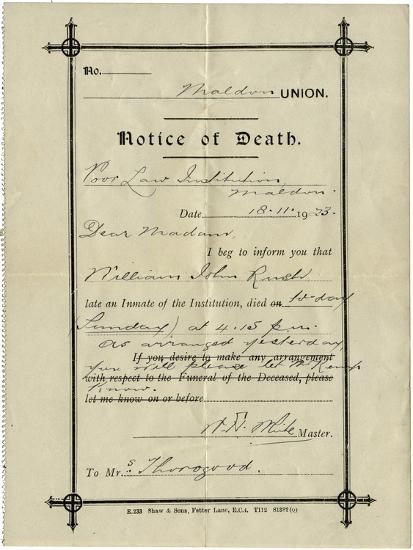 No.
Maldon UNION.
Notice of Death.
Poor Law Institution,
Maldon.
Date 18.11.1923.
Dear Madam,
I beg to inform you that
William John Rush
late an Inmate of the Institution, died on to-day
(Sunday) at 4.15 p.m.
as arranged yesterday,
If you desire to make any arrangement
you will please let Mr Kemp
with respect to the Funeral of the Deceased, please
know.
let me know on or before
Master.
To Mrs Thorogood.
E.233 Shaw & Sons, Fetter Lane, E.C.4. T112 81382 (o)